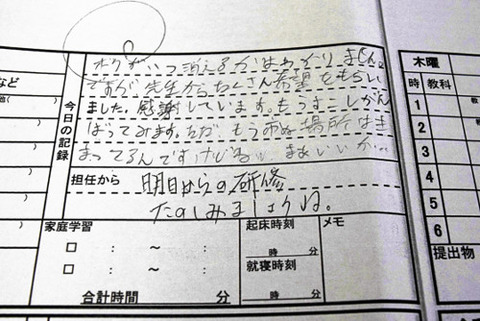 など
他(
)
)
)
)
今日の記録
ボクがいつ消えるかはわかりません。
ですが、先生からたくさん希望をもらい
ました。感謝しています。もうすこしがん
ばってみます。ただ、もう市ぬ場所はき
まってるんですけどね。まあいいか…
担任から
明日からの研修
たのしみましょうね。
家庭学習
□ : ～ :
□ : ～ :
合計時間 分
起床時刻
時 分
就寝時刻
時 分
メモ
木曜
時 教科
1
2
3
4
5
6
提出物